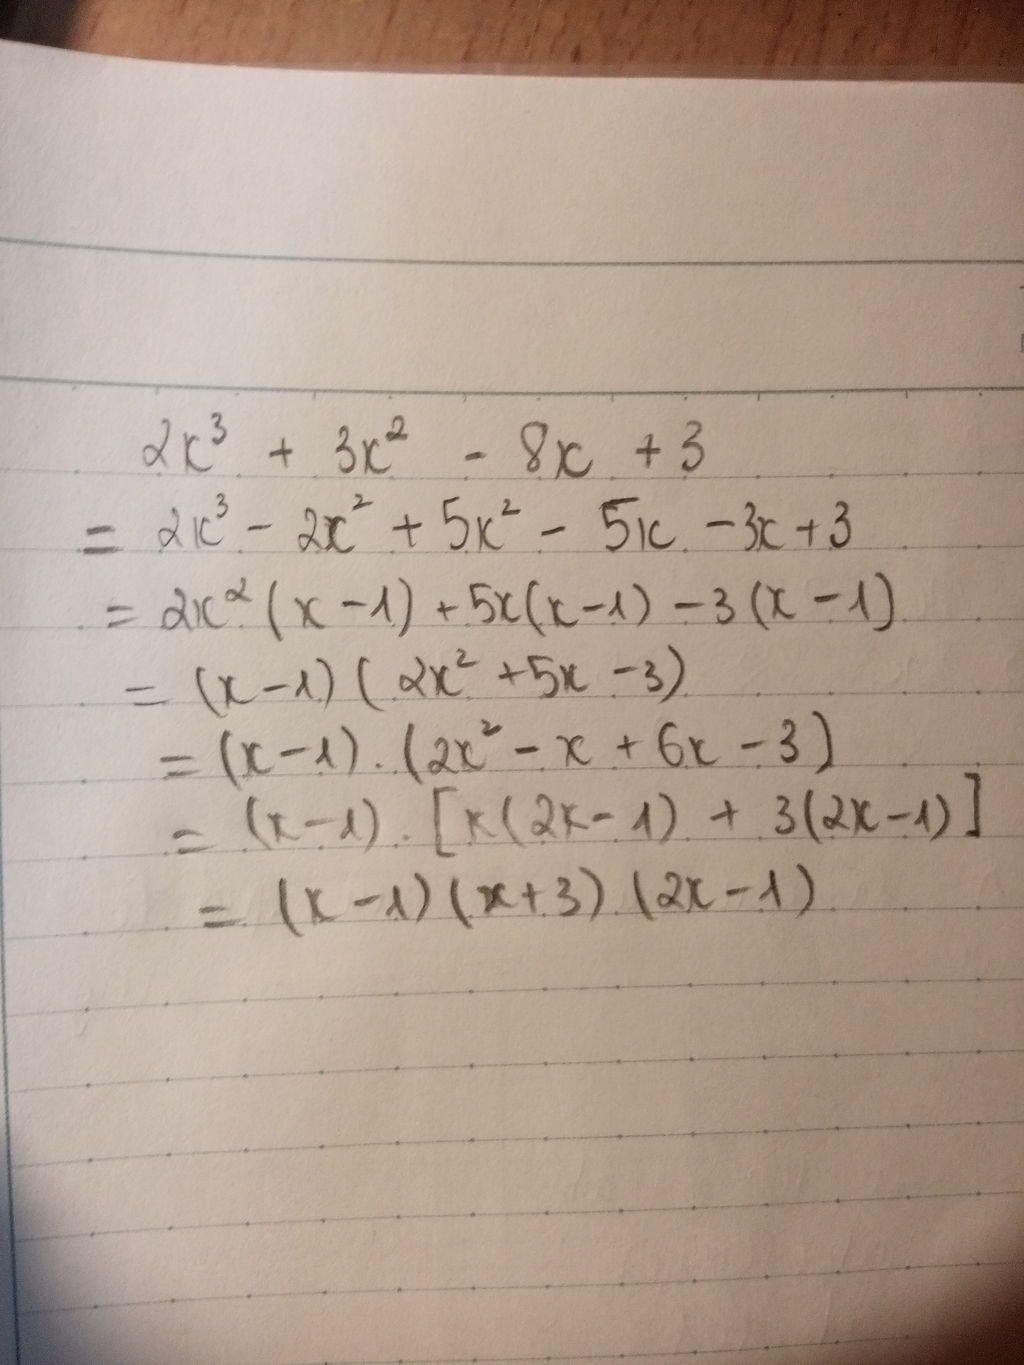 2x³ + 3x² - 8x + 3
= 2x³ - 2x² + 5x² - 5x - 3x + 3
= 2x² (x - 1) + 5x(x - 1) - 3 (x - 1)
= (x - 1) (2x² + 5x - 3)
= (x - 1) . (2x² - x + 6x - 3)
= (x - 1) . [x(2x - 1) + 3(2x - 1)]
= (x - 1) (x + 3) (2x - 1)